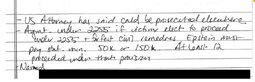 - US Attorney has said could be prosecuted elsewhere
Agmt. under 2255 if victims elect to proceed
under 2255 + select civil remedies, Epstein must
pay stat. min. 50K or 150K. At least 12
proceeded under that provision